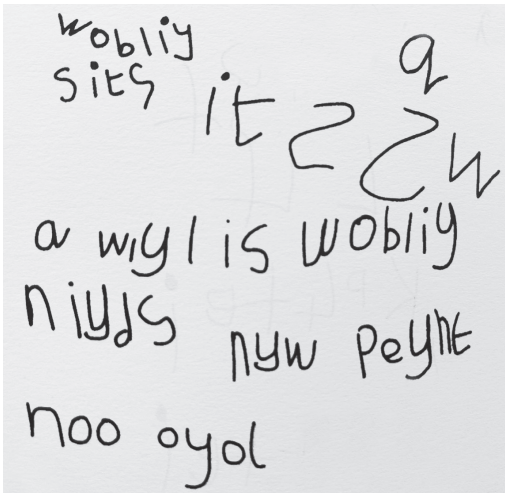 wobliy
q
sits it
a wiyl is wobliy
niyds nyw peynt
noo oyol